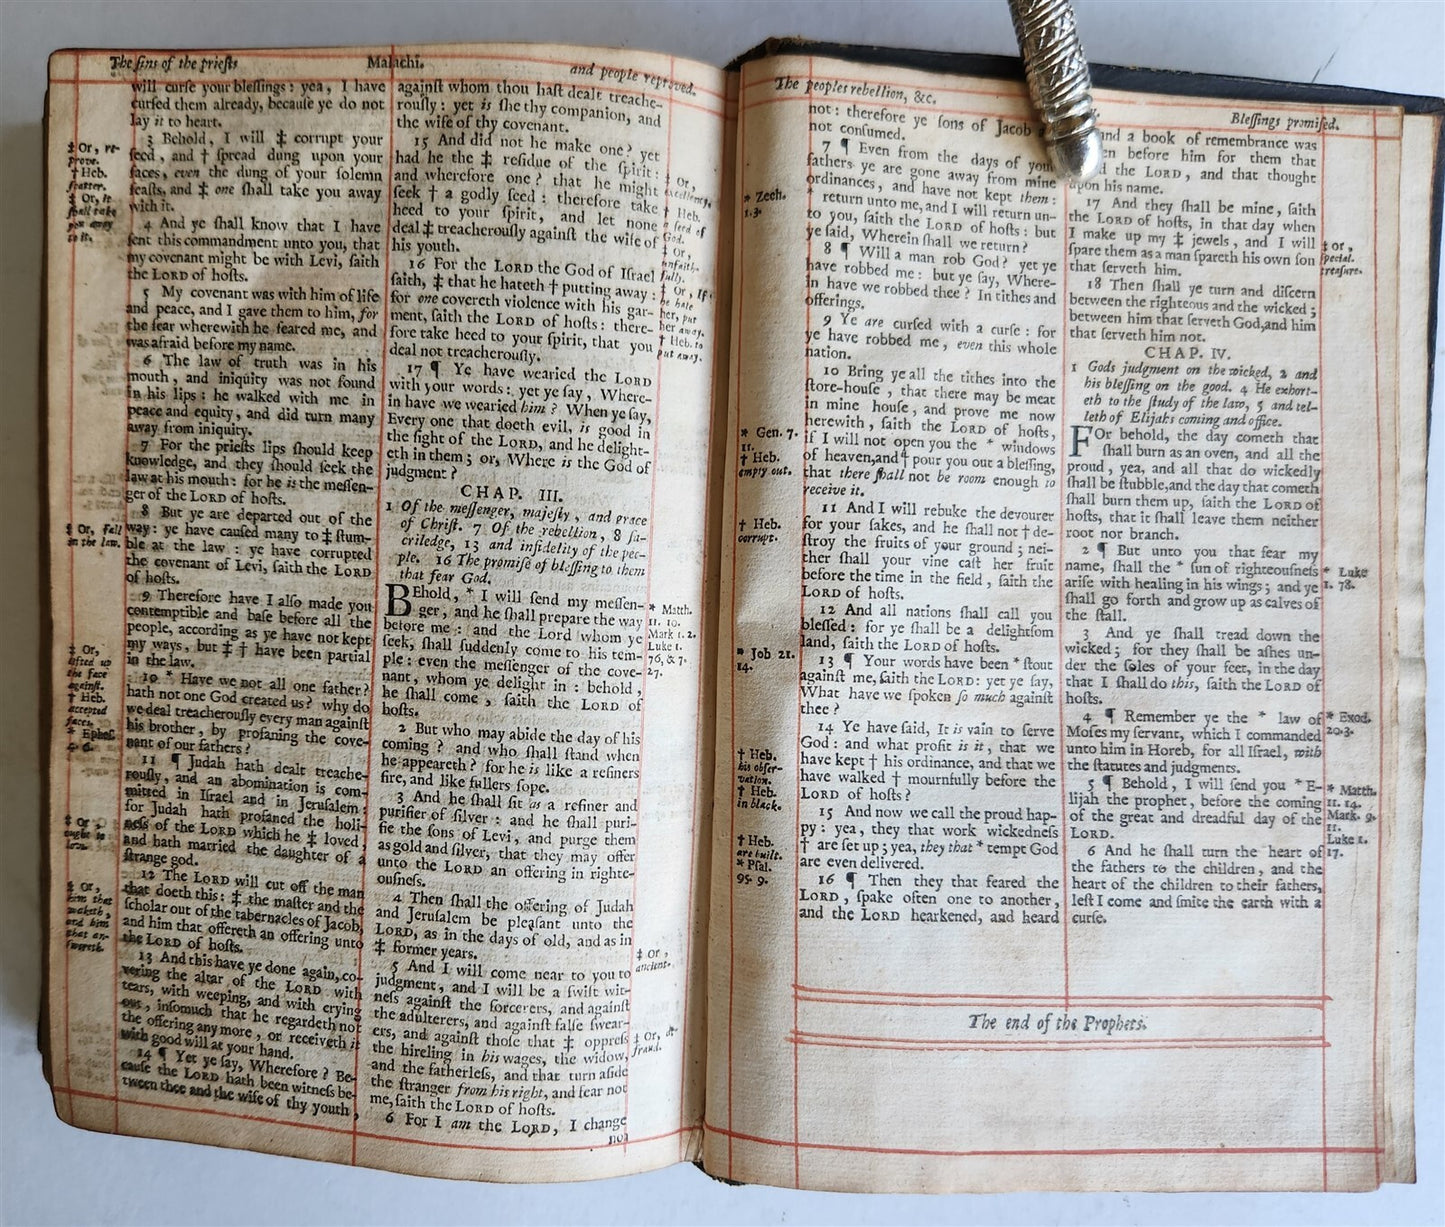 The ſins of the prieſts
Malachi.
and people reproved.
will curſe your bleſſings: yea, I have
curſed them already, becauſe ye do not
lay it to heart.
3 Behold, I will ‡ corrupt your
ſeed, and † ſpread dung upon your
faces, even the dung of your ſolemn
feaſts, and ‡ one ſhall take you away
with it.
4 And ye ſhall know that I have
ſent this commandment unto you, that
my covenant might be with Levi, ſaith
the LORD of hoſts.
5 My covenant was with him of life
and peace, and I gave them to him, for
the fear wherewith he feared me, and
was afraid before my name.
6 The law of truth was in his
mouth, and iniquity was not found
in his lips: he walked with me in
peace and equity, and did turn many
away from iniquity.
7 For the prieſts lips ſhould keep
knowledge, and they ſhould ſeek the
law at his mouth: for he is the meſſen-
ger of the LORD of hoſts.
8 But ye are departed out of the
way: ye have cauſed many to ‡ ſtum-
ble at the law: ye have corrupted
the covenant of Levi, ſaith the LORD
of hoſts.
9 Therefore have I alſo made you
contemptible and baſe before all the
people, according as ye have not kept
my ways, but ‡ † have been partial
in the law.
10 * Have we not all one father?
hath not one God created us? why do
we deal treacherouſly every man againſt
his brother, by profaning the cove-
nant of our fathers?
11 ¶ Judah hath dealt treache-
rouſly, and an abomination is com-
mitted in Iſrael and in Jeruſalem:
for Judah hath profaned the holi-
neſs of the LORD which he ‡ loved,
and hath married the daughter of a
ſtrange god.
12 The LORD will cut off the man
that doeth this: ‡ the maſter and the
ſcholar out of the tabernacles of Jacob,
and him that offereth an offering unto
the LORD of hoſts.
13 And this have ye done again, co-
vering the altar of the LORD with
tears, with weeping, and with crying
out, inſomuch that he regardeth not
the offering any more, or receiveth it
with good will at your hand.
14 ¶ Yet ye ſay, Wherefore? Be-
cauſe the LORD hath been witneſs be-
tween thee and the wife of thy youth,
‡ Or, re-
prove.
† Heb.
ſcatter.
‡ Or, it
ſhall take
you away
to it.
‡ Or, fall
in the law.
‡ Or,
lifted up
the face
againſt.
† Heb.
accepted
faces.
* Epheſ.
4. 6.
‡ Or,
ought to
love.
‡ Or,
him that
waketh,
and him
that an-
ſwereth.
againſt whom thou haſt dealt treache-
rouſly: yet is ſhe thy companion, and
the wife of thy covenant.
15 And did not he make one? yet
had he the ‡ reſidue of the ſpirit:
and wherefore one? that he might
ſeek † a godly ſeed: therefore take
heed to your ſpirit, and let none
deal ‡ treacherouſly againſt the wife of
his youth.
16 For the LORD the God of Iſrael
ſaith, ‡ that he hateth † putting away:
for one covereth violence with his gar-
ment, ſaith the LORD of hoſts: there-
fore take heed to your ſpirit, that you
deal not treacherouſly.
17 ¶ Ye have wearied the LORD
with your words: yet ye ſay, Where-
in have we wearied him? When ye ſay,
Every one that doeth evil, is good in
the ſight of the LORD, and he delight-
eth in them; or, Where is the God of
judgment?
CHAP. III.
1 Of the meſſenger, majeſty, and grace
of Chriſt. 7 Of the rebellion, 8 ſa-
criledge, 13 and infidelity of the peo-
ple. 16 The promiſe of bleſſing to them
that fear God.
BEhold, * I will ſend my meſſen-
ger, and he ſhall prepare the way
before me: and the Lord whom ye
ſeek, ſhall ſuddenly come to his tem-
ple: even the meſſenger of the cove-
nant, whom ye delight in: behold,
he ſhall come, ſaith the LORD of
hoſts.
2 But who may abide the day of his
coming? and who ſhall ſtand when
he appeareth? for he is like a refiners
fire, and like fullers ſope.
3 And he ſhall ſit as a refiner and
purifier of ſilver: and he ſhall puri-
fie the ſons of Levi, and purge them
as gold and ſilver, that they may offer
unto the LORD an offering in righte-
ouſneſs.
4 Then ſhall the offering of Judah
and Jeruſalem be pleaſant unto the
LORD, as in the days of old, and as in
‡ former years.
5 And I will come near to you to
judgment, and I will be a ſwift wit-
neſs againſt the ſorcerers, and againſt
the adulterers, and againſt falſe ſwear-
ers, and againſt thoſe that ‡ oppreſs
the hireling in his wages, the widow,
and the fatherleſs, and that turn aſide
the ſtranger from his right, and fear not
me, ſaith the LORD of hoſts.
6 For I am the LORD, I change
not
‡ Or,
excellency.
† Heb.
a ſeed of
God.
‡ Or,
unfaith-
fully.
‡ Or, If
he hate
her, put
her away.
† Heb. to
put away.
* Matth.
11. 10.
Mark 1. 2.
Luke 1.
76, & 7.
27.
‡ Or,
ancient.
‡ Or, de-
fraud.
The peoples rebellion, &c.
Bleſſings promiſed.
not: therefore ye ſons of Jacob
not conſumed.
7 ¶ Even from the days of your
fathers ye are gone away from mine
ordinances, and have not kept them:
* return unto me, and I will return un-
to you, ſaith the LORD of hoſts: but
ye ſaid, Wherein ſhall we return?
8 ¶ Will a man rob God? yet ye
have robbed me: but ye ſay, Where-
in have we robbed thee? In tithes and
offerings.
9 Ye are curſed with a curſe: for
ye have robbed me, even this whole
nation.
10 Bring ye all the tithes into the
ſtore-houſe, that there may be meat
in mine houſe, and prove me now
herewith, ſaith the LORD of hoſts,
if I will not open you the * windows
of heaven, and † pour you out a bleſſing,
that there ſhall not be room enough to
receive it.
11 And I will rebuke the devourer
for your ſakes, and he ſhall not † de-
ſtroy the fruits of your ground; nei-
ther ſhall your vine caſt her fruit
before the time in the field, ſaith the
LORD of hoſts.
12 And all nations ſhall call you
bleſſed: for ye ſhall be a delightſom
land, ſaith the LORD of hoſts.
13 ¶ Your words have been * ſtout
againſt me, ſaith the LORD: yet ye ſay,
What have we ſpoken ſo much againſt
thee?
14 Ye have ſaid, It is vain to ſerve
God: and what profit is it, that we
have kept † his ordinance, and that we
have walked † mournfully before the
LORD of hoſts?
15 And now we call the proud hap-
py: yea, they that work wickedneſs
† are ſet up; yea, they that * tempt God
are even delivered.
16 ¶ Then they that feared the
LORD, ſpake often one to another,
and the LORD hearkened, and heard
* Zech.
1. 3.
* Gen. 7.
11.
† Heb.
empty out.
† Heb.
corrupt.
* Job 21.
14.
† Heb.
his obſer-
vation.
† Heb.
in black.
† Heb.
are built.
* Pſal.
95. 9.
and a book of remembrance was
en before him for them that
d the LORD, and that thought
upon his name.
17 And they ſhall be mine, ſaith
the LORD of hoſts, in that day when
I make up my ‡ jewels, and I will
ſpare them as a man ſpareth his own ſon
that ſerveth him.
18 Then ſhall ye turn and diſcern
between the righteous and the wicked;
between him that ſerveth God, and him
that ſerveth him not.
CHAP. IV.
1 Gods judgment on the wicked, 2 and
his bleſſing on the good. 4 He exhort-
eth to the ſtudy of the law, 5 and tel-
leth of Elijahs coming and office.
FOr behold, the day cometh that
ſhall burn as an oven, and all the
proud, yea, and all that do wickedly
ſhall be ſtubble, and the day that cometh
ſhall burn them up, ſaith the LORD of
hoſts, that it ſhall leave them neither
root nor branch.
2 ¶ But unto you that fear my
name, ſhall the * ſun of righteouſneſs
ariſe with healing in his wings; and ye
ſhall go forth and grow up as calves of
the ſtall.
3 And ye ſhall tread down the
wicked; for they ſhall be aſhes un-
der the ſoles of your feet, in the day
that I ſhall do this, ſaith the LORD of
hoſts.
4 ¶ Remember ye the * law of
Moſes my ſervant, which I commanded
unto him in Horeb, for all Iſrael, with
the ſtatutes and judgments.
5 ¶ Behold, I will ſend you * E-
lijah the prophet, before the coming
of the great and dreadful day of the
LORD.
6 And he ſhall turn the heart of
the fathers to the children, and the
heart of the children to their fathers,
leſt I come and ſmite the earth with a
curſe.
‡ Or,
ſpecial
treaſure.
* Luke
1. 78.
* Exod.
20. 3.
* Matth.
11. 14.
Mark. 9.
11.
Luke 1.
17.
The end of the Prophets.